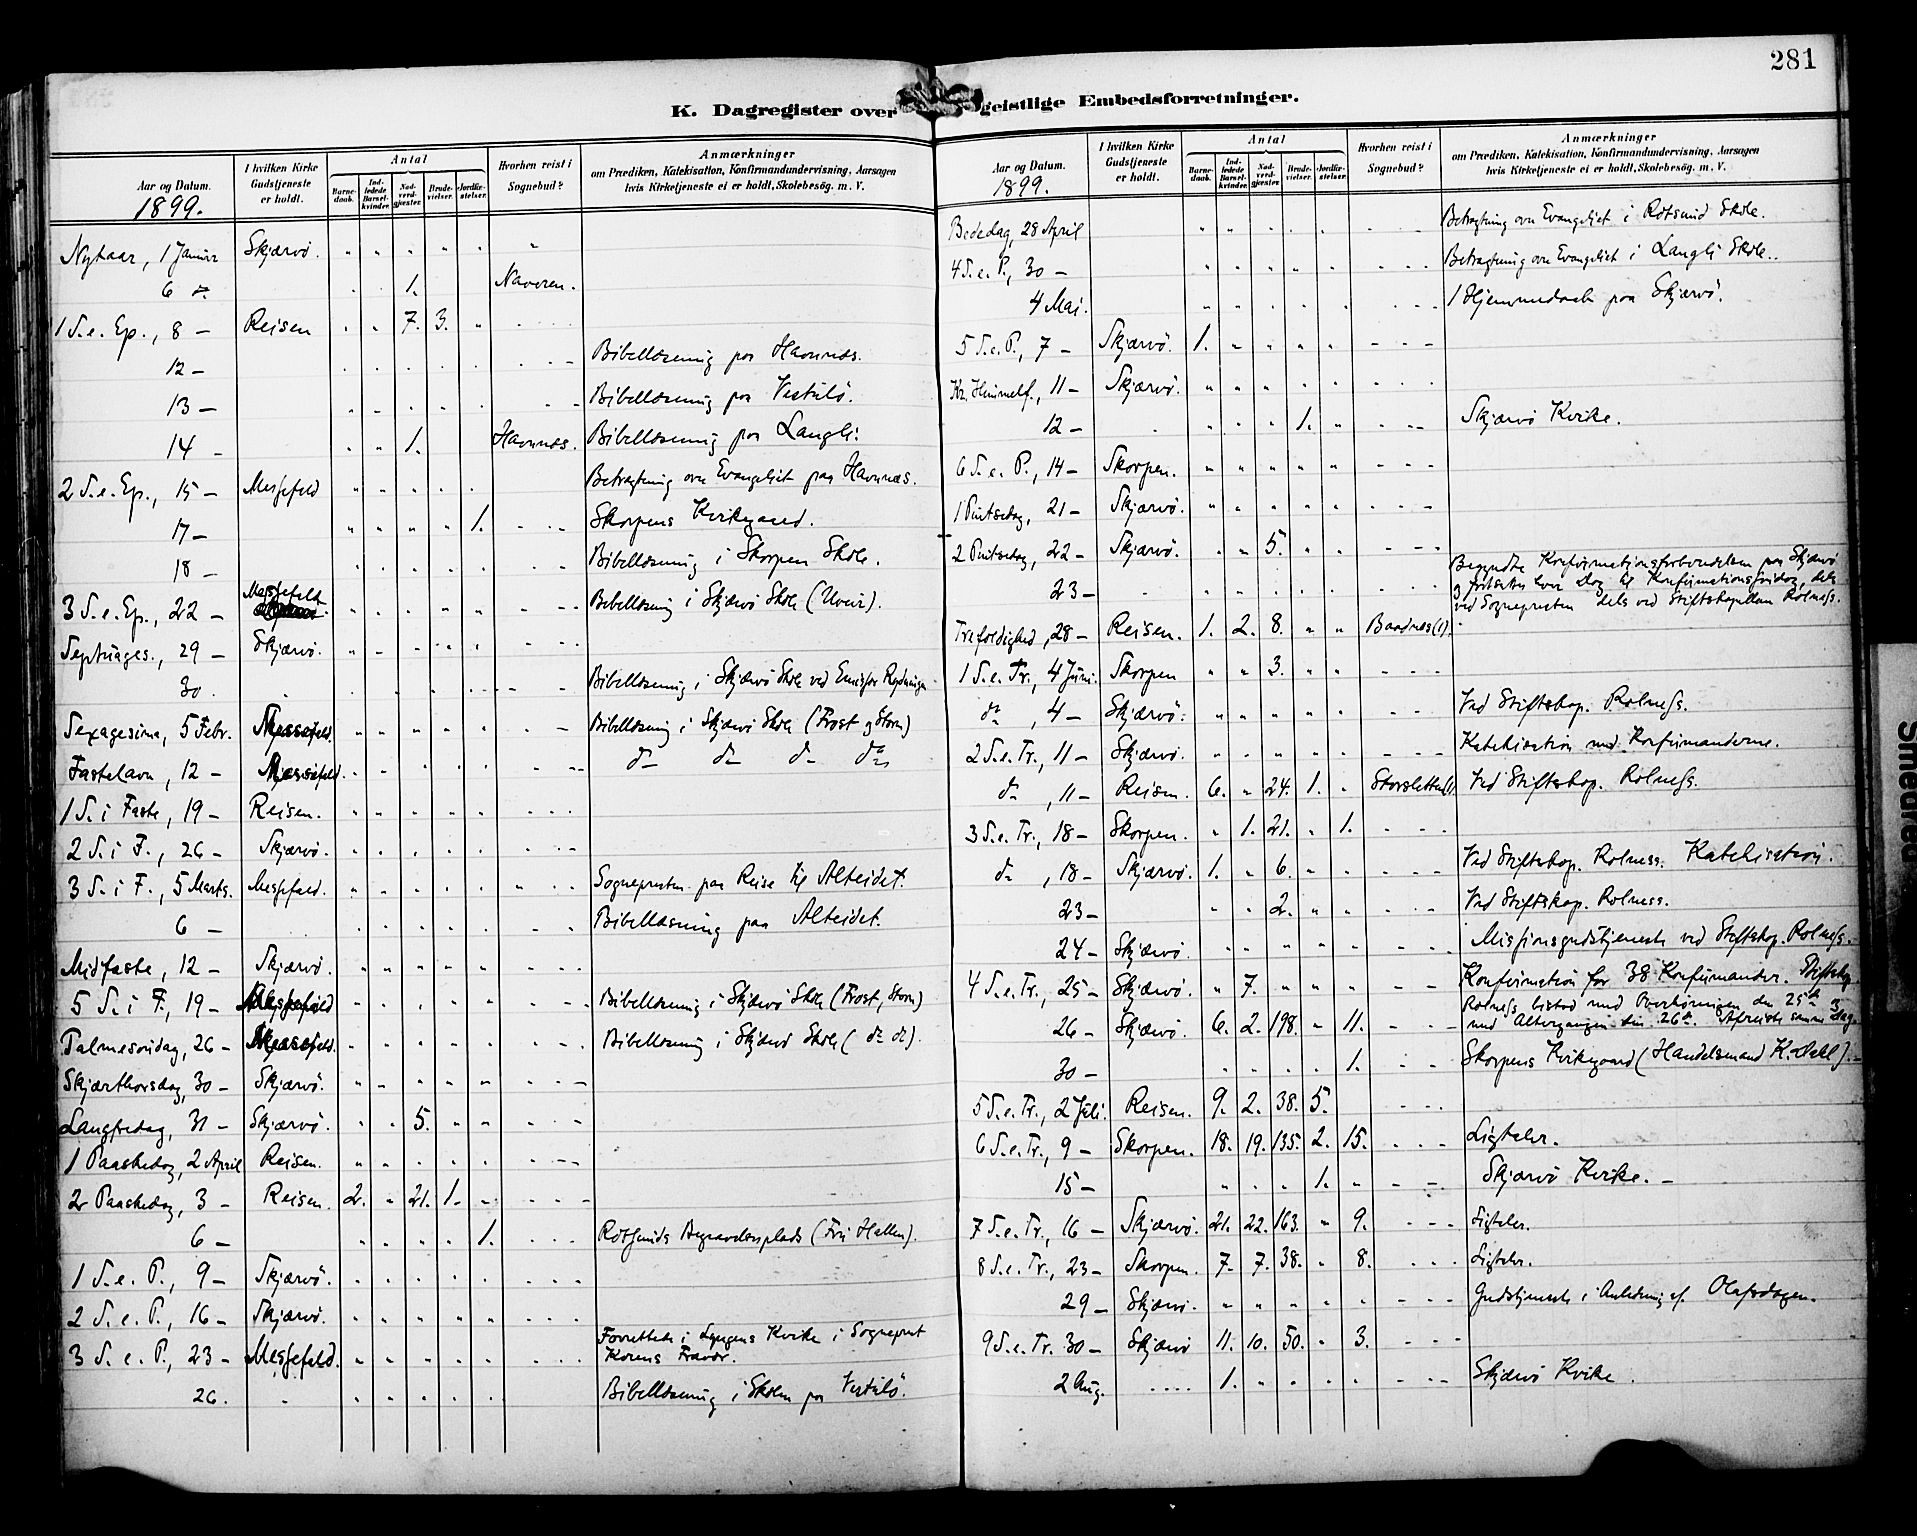 281
K. Dagregister over geistlige Embedsforretninger.
Aar og Datum. 1899. I hvilken Kirke Gudstjeneste er holdt. Antal Barnedaab. Indledede Barselkvinder. Nadverdgjæster. Brudevielser. Jordfæstelser. Hvorhen reist i Sognebud? Anmærkninger om Prædiken, Katekisation, Konfirmandundervisning, Aarsagen hvis Kirketjeneste ei er holdt, Skolebesøg. m. V.
Nytaar, 1 Januar Skjærvö. " " " " " "
6 d. 1. Navren.
1 S. e. Ep., 8 — Reisen " " 7. 3. "
12 — Bibellæsning paa Havnnæs.
13 — Bibellæsning paa
14 — " " 1. Havnnæs. Bibellæsning paa Langli.
2 S. e. Ep., 15 — Messefald " " " " " Betragtning over Evangeliet paa Havnnæs.
17 — " " " " 1. Skorpens Kirkegaard.
18 — Bibellæsning i Skorpen Skole.
3 S. e. Ep., 22 — Messefald Bibellæsning i Skjærvö Skole (Uveir).
Septuages., 29 — Skjærvö.
30. Bibellæsning i Skjærvö Skole ved Emissær
Sexagesima, 5 Febr. Messefald. Bibellæsning i Skjærvö Skole (Frost og Storm)
Fastelavn, 12 — Messefald. do do do do
1 S. i Faste, 19 — Reisen.
2 S. i F., 26 — Skjærvö.
3 S. i F., 5 Marts. Messefald. Sognepresten paa Reise til Alteidet.
6 — Bibellæsning paa Alteidet.
Midfaste, 12 — Skjærvö.
5 S. i F., 19 — Messefald Bibellæsning i Skjærvö Skole (Frost, Storm)
Palmesöndag, 26 — Messefald. Bibellæsning i Skjærvö Skole (do do).
Skjærthorsdag, 30 — Skjærvö.
Langfredag, 31 — Skjærvö. " " 5. " "
1 Paaskedag, 2 April Reisen.
2 Paaskedag, 3 — Reisen. 2. " 21. 1. "
6 — " " " " 1. Rotsunds Begravelsesplads
1 S. e. P., 9 — Skjærvö.
2 S. e. P., 16 — Skjærvö.
3 S. e. P., 23 — Messefald. Forrettede i Lyngens Kirke i Sogneprest
Korens Fravær.
26. Bibellæsning i Skolen paa
Aar og Datum. 1899. I hvilken Kirke Gudstjeneste er holdt. Antal Barnedaab. Indledede Barselkvinder. Nadverdgjæster. Brudevielser. Jordfæstelser. Hvorhen reist i Sognebud? Anmærkninger om Prædiken, Katekisation, Konfirmandundervisning, Aarsagen hvis Kirketjeneste ei er holdt, Skolebesøg. m. V.
Bededag, 28 April Betragtning over Evangeliet i Rotsund Skole.
4 S. e. P., 30 — Betragtning over Evangeliet i Langli Skole.
4 Mai. 1 Hjemmedaab paa Skjærvö.
5 S. e. P., 7 — Skjærvö. 1. " " " "
Kr. Himmelf., 11 — Skjærvö.
12 — " " " 1. " Skjærvö Kirke.
6 S. e. P., 14 — Skorpen.
1 Pintsedag, 21 — Skjærvö.
2 Pintsedag, 22 — Skjærvö. " " 5. " "
23 — Begyndte Konfirmationsforberedelsen paa Skjærvö
og fortsatte hver Dag til Konfirmationsfredag, dels
ved Sognepresten dels ved Stiftskapellan Rolness.
Trefoldighed, 28 — Reisen. 1. 2. 8. " " Baadnæs (1).
1 S. e. Tr., 4 Juni. Skorpen " " 3. " "
do, 4 — Skjærvö. Ved Stiftskap. Rolness.
2 S. e. Tr., 11 — Skjærvö. Katekisation med Konfirmanderne.
do, 11 — Reisen. 6. " 24. 1. " Ved Stiftskap. Rolness.
3 S. e. Tr., 18 — Skorpen. " 1. 21. " 1.
do, 18 — Skjærvö. 1. " 6. " " Ved Stiftskap. Rolness. Katekisation.
23 — " " 2. " " Ved Stiftskap. Rolness.
24 — Skjærvö. Missionsgudstjeneste ved Stiftskap. Rolness.
4 S. e. Tr., 25 — Skjærvö. " 7. " " " Konfirmation for 38 Konfirmander. Stiftskap.
Rolness bistod med Overhöringen den 25de og
26 — Skjærvö. 6. 2. 198. " 11. med Altergangen den 26de. Afreiste samme Dag.
30 — " " " " 1. Skorpens Kirkegaard (Handelsmand K. Dahl).
5 S. e. Tr., 2 Juli. Reisen. 9. 2. 38. 5.
6 S. e. Tr., 9 — Skorpen. 18. 19. 135. 2. 15. Ligtaler.
15 — " " " 1. " Skjærvö Kirke.
7 S. e. Tr., 16 — Skjærvö. 21. 22. 163. " 9. Ligtaler.
8 S. e. Tr., 23 — Skorpen. 7. 7. 38. " 8. Ligtaler.
29 — Skjærvö. Gudstjeneste i Anledning af Olafsdagen.
9 S. e. Tr. 30 — Skjærvö 11. 10. 50. " 3.
2 Aug. 1. " " " " Skjærvö Kirke.